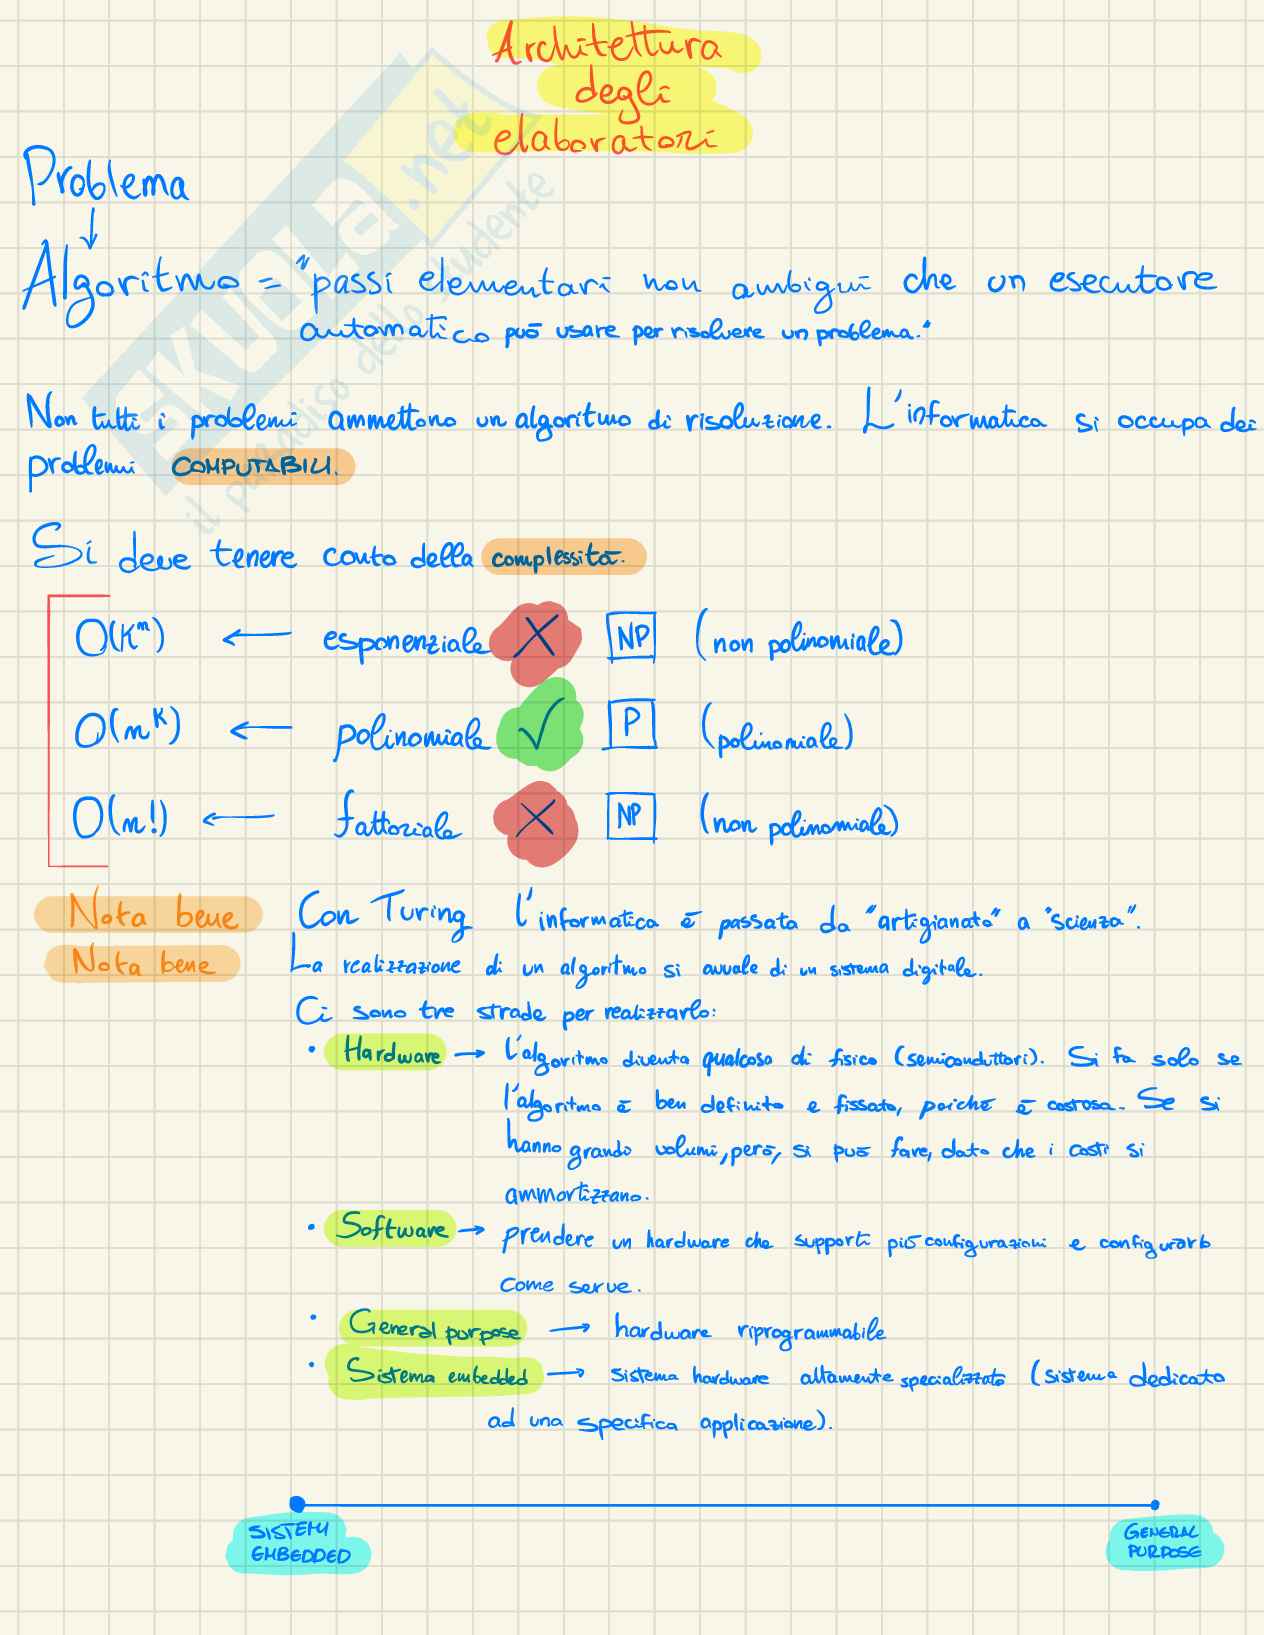 Architettura
degli
elaboratori
Problema
↓
Algoritmo = "passi elementari non ambigui che un esecutore
automatico può usare per risolvere un problema."
Non tutti i problemi ammettono un algoritmo di risoluzione. L'informatica si occupa dei
problemi COMPUTABILI.
Si deve tenere conto della complessità.
O(Kⁿ) ← esponenziale X NP (non polinomiale)
O(nᴷ) ← polinomiale √ P (polinomiale)
O(n!) ← fattoriale X NP (non polinomiale)
Nota bene Con Turing l'informatica è passata da "artigianato" a "scienza".
Nota bene La realizzazione di un algoritmo si avvale di un sistema digitale.
Ci sono tre strade per realizzarlo:
• Hardware → l'algoritmo diventa qualcosa di fisico (semiconduttori). Si fa solo se
l'algoritmo è ben definito e fissato, poichè è costosa. Se si
hanno grando volumi, però, si può fare, dato che i costi si
ammortizzano.
• Software → prendere un hardware che supporti più configurazioni e configurarlo
come serve.
• General purpose → hardware riprogrammabile
• Sistema embedded → sistema hardware altamente specializzato (sistema dedicato
ad una specifica applicazione).
SISTEMI
EMBEDDED
GENERAL
PURPOSE
SKUOLA.net
il paradiso dello studente